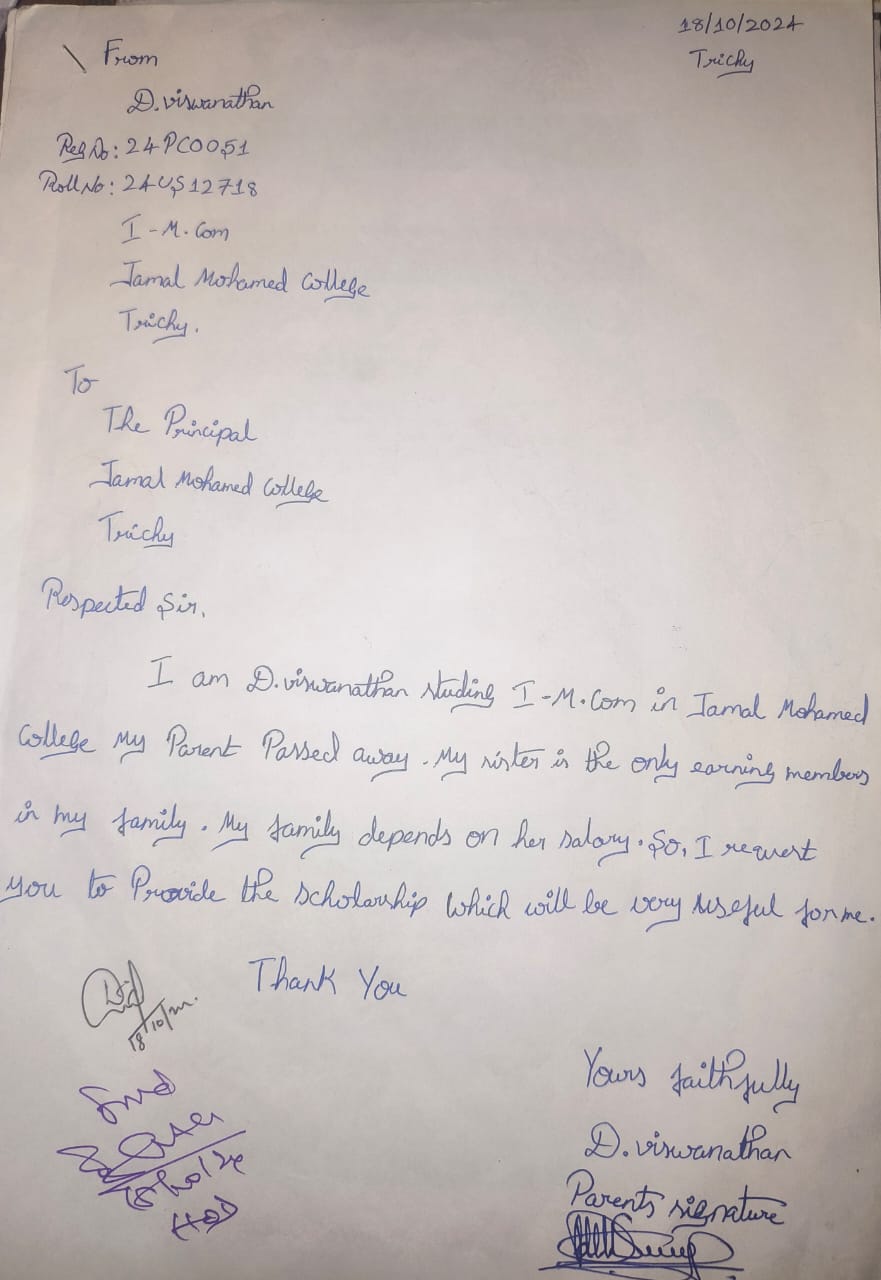 18/10/2024
Trichy
From
D.viswanathan
Reg No: 24PC0051
Roll No: 24US12718
I - M. Com
Jamal Mohamed College
Trichy.
To
The Principal
Jamal Mohamed College
Trichy
Respected Sir,
I am D.viswanathan studing I - M. Com in Jamal Mohamed
College My Parent Passed away. My sister is the only earning members
in my family. My family depends on her salary. So, I request
you to Provide the scholarship which will be very useful for me.
Thank You
18/10/
Yours faithfully
D.viswanathan
Parents signature
HOD